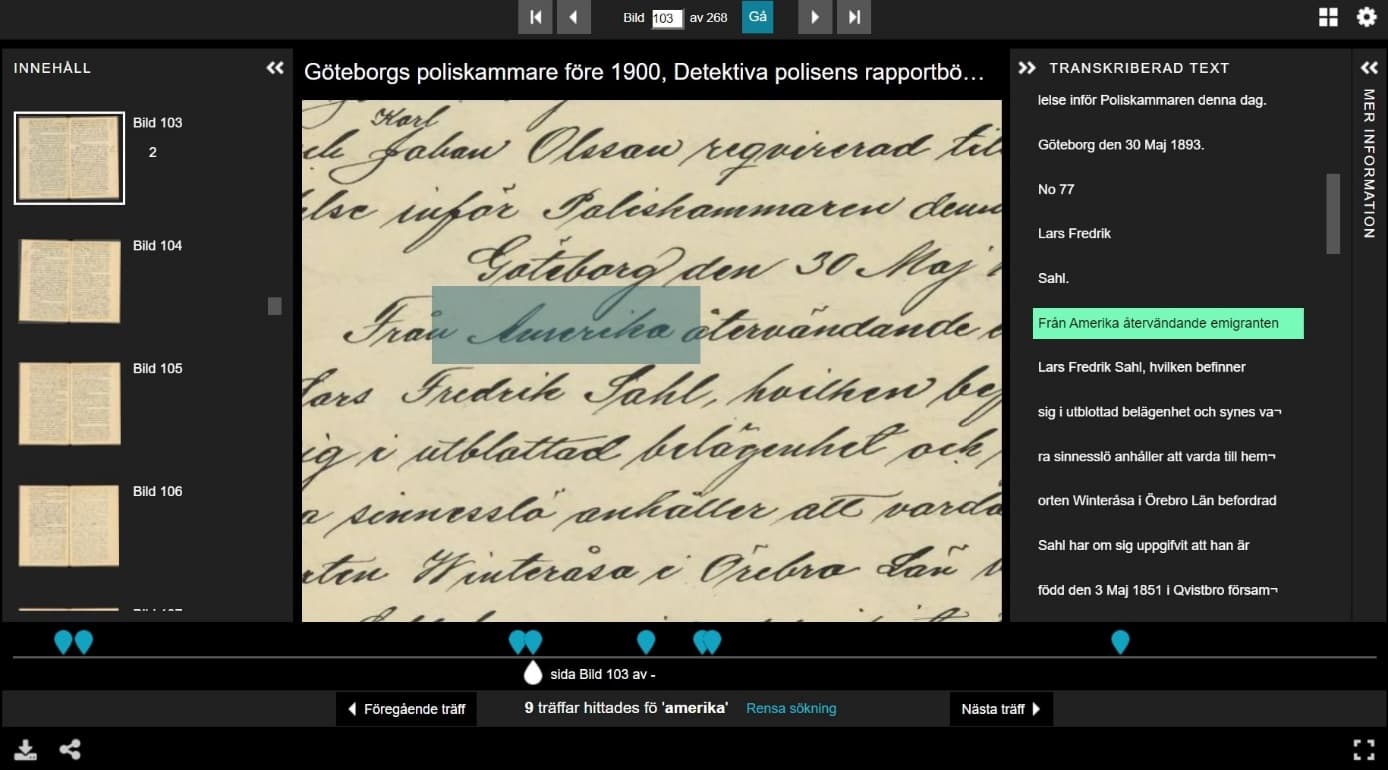 Bild 103 av 268 Gå
INNEHÅLL
Bild 103
2
Bild 104
Bild 105
Bild 106
Göteborgs poliskammare före 1900, Detektiva polisens rapportbö…
Karl
Johan Olssan reqvirerad till
else inför Poliskammaren denn
Göteborg den 30 Maj
Från Amerika återvändande e
Lars Fredrik Sahl, hvilken bef
sig i utblottad belägenhet och
a sinnesslö anhåller att varda
rten Winteråsa i Örebro Län
TRANSKRIBERAD TEXT
lelse inför Poliskammaren denna dag.
Göteborg den 30 Maj 1893.
No 77
Lars Fredrik
Sahl.
Från Amerika återvändande emigranten
Lars Fredrik Sahl, hvilken befinner
sig i utblottad belägenhet och synes va¬
ra sinnesslö anhåller att varda till hem¬
orten Winteråsa i Örebro Län befordrad
Sahl har om sig uppgifvit att han är
född den 3 Maj 1851 i Qvistbro försam¬
MER INFORMATION
sida Bild 103 av -
Föregående träff
9 träffar hittades fö 'amerika' Rensa sökning
Nästa träff